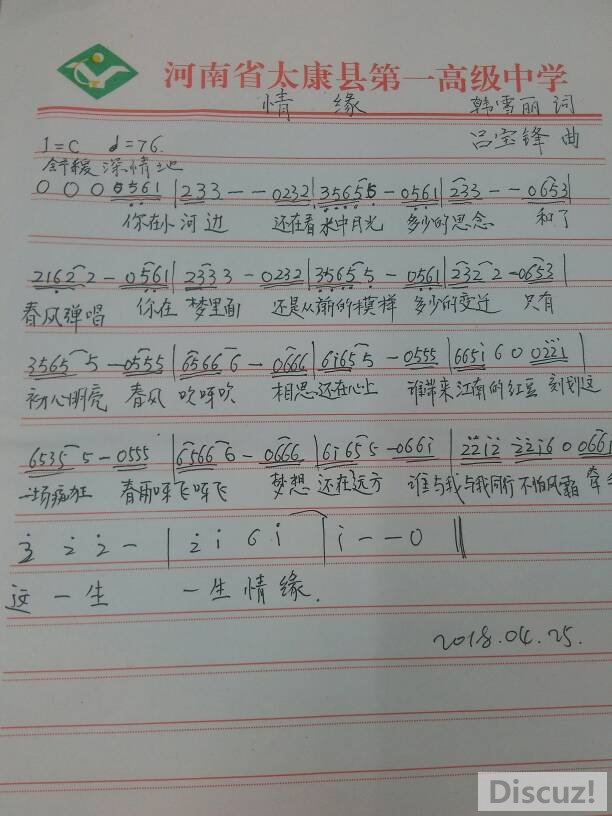 河南省太康县第一高级中学
情 缘 韩雪丽 词
1=C ♩=76. 吕宝锋 曲
舒缓 深情地
0 0 0 0561 | 233 - - 0232 | 35655 - 0561 | 233 - - 0653 |
你在小 河 边 还在看 水中月光 多少的思念 和了
21622 - 0561 | 2333 - 0232 | 35655 - 0561 | 23222 - 0653 |
春风弹唱 你在 梦里面 还是从前的模样 多少的变迁 只有
35655 - 0555 | 65666 - 0666 | 61655 - 0555 | 6651 6 0 0221 |
初心明亮 春风 吹呀吹 相思 还在心上 谁带来江南的红豆 刻划这
65355 - 0555 | 65666 - 0666 | 61655 - 0661 | 2212 2216 0 0661
一场疯狂 春雨呀飞呀飞 梦想 还在远方 谁与我与我同行 不怕风霜 牵手
3 2 2 - | 2 1 6 1 | 1 - - 0 ‖
这 一 生 一 生 情 缘.
2018.04.25.
Discuz!